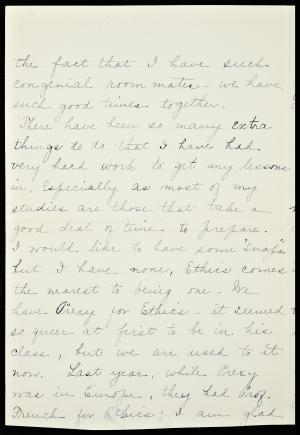 the fact that I have such
congenial room mates - we have
such good times together.
There have been so many extra
things to do that I have had
very hard work to get my lessons
in, especially as most of my
studies are those that take a
good deal of time to prepare.
I would like to have some "snaps",
but I have none, Ethics comes
the nearest to being one. We
have Prexy for Ethics - it seemed
so queer at first to be in his
class, but we are used to it
now. Last year, while Prexy
was in Europe, they had Prof.
French for Ethics; I am glad